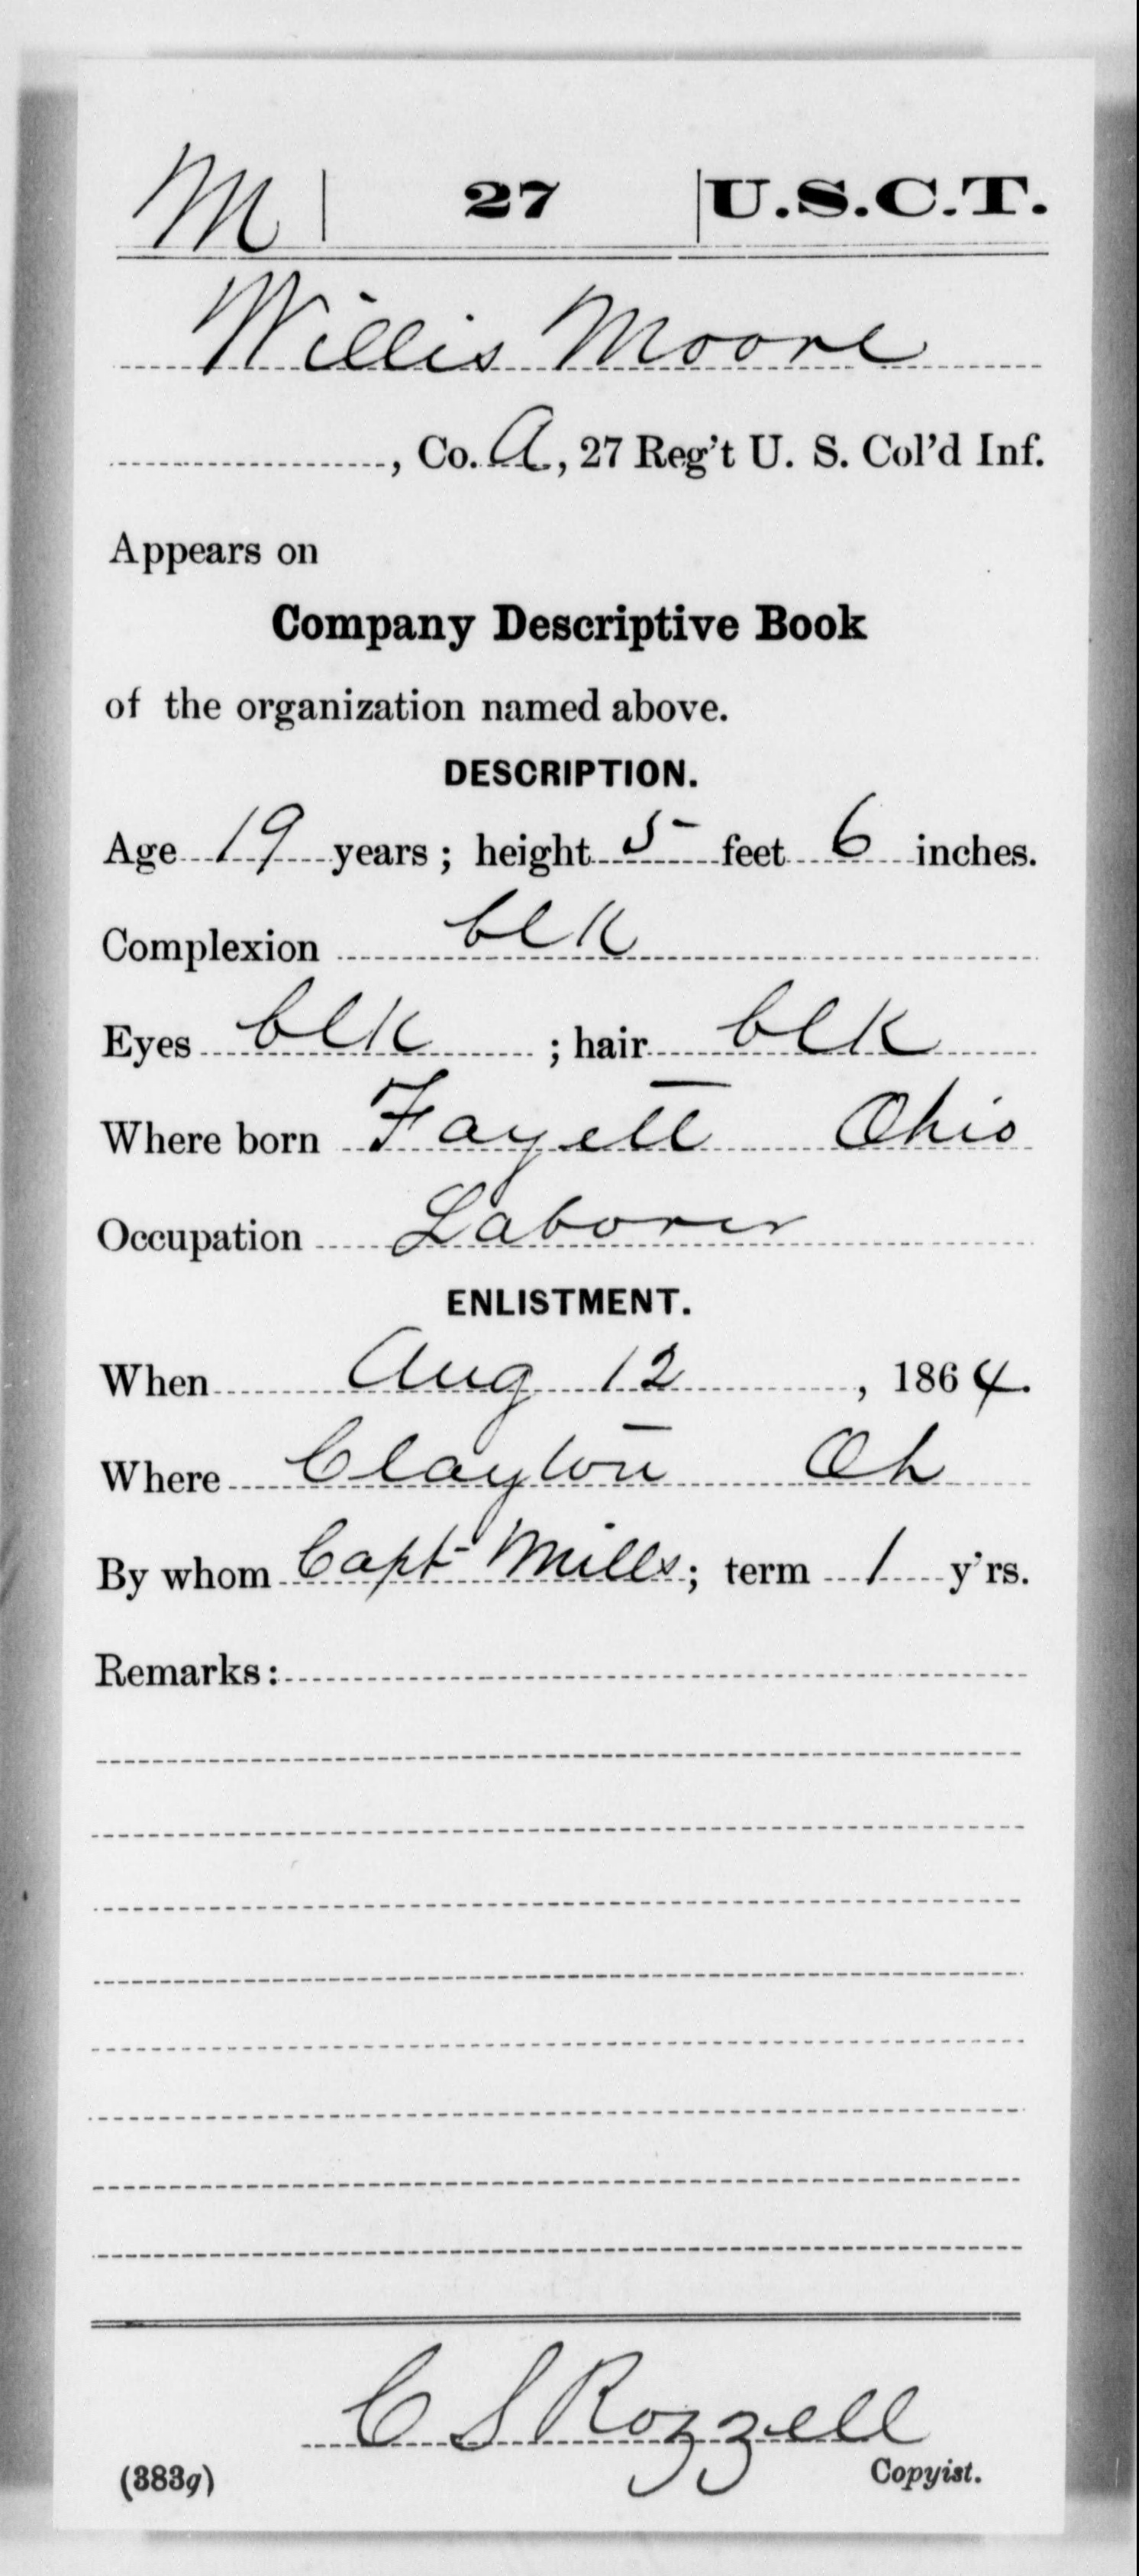 M | 27 | U.S.C.T.
Willis Moore
, Co. A, 27 Reg't U. S. Col'd Inf.
Appears on
Company Descriptive Book
of the organization named above.
DESCRIPTION.
Age 19 years; height 5 feet 6 inches.
Complexion blk
Eyes blk ; hair blk
Where born Fayett Ohio
Occupation Laborer
ENLISTMENT.
When Aug 12, 1864.
Where Clayton Oh
By whom Capt Mills; term 1 y'rs.
Remarks:
C S Rozzell
(383g) Copyist.